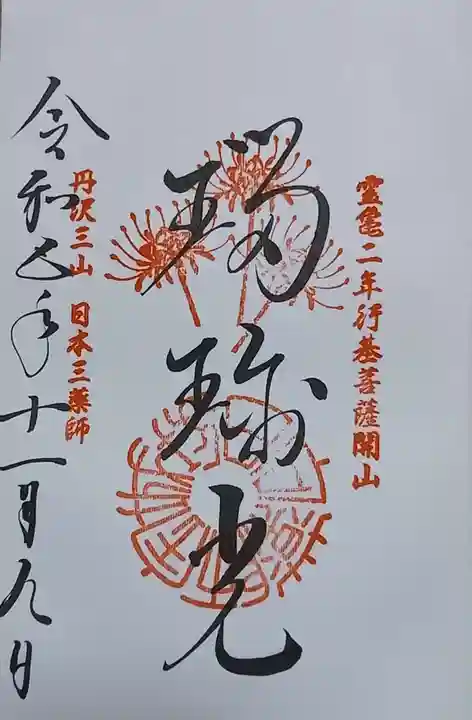 霊亀二年行基菩薩開山
瑠璃光
丹沢三山 日本三薬師
令和五年十一月九日